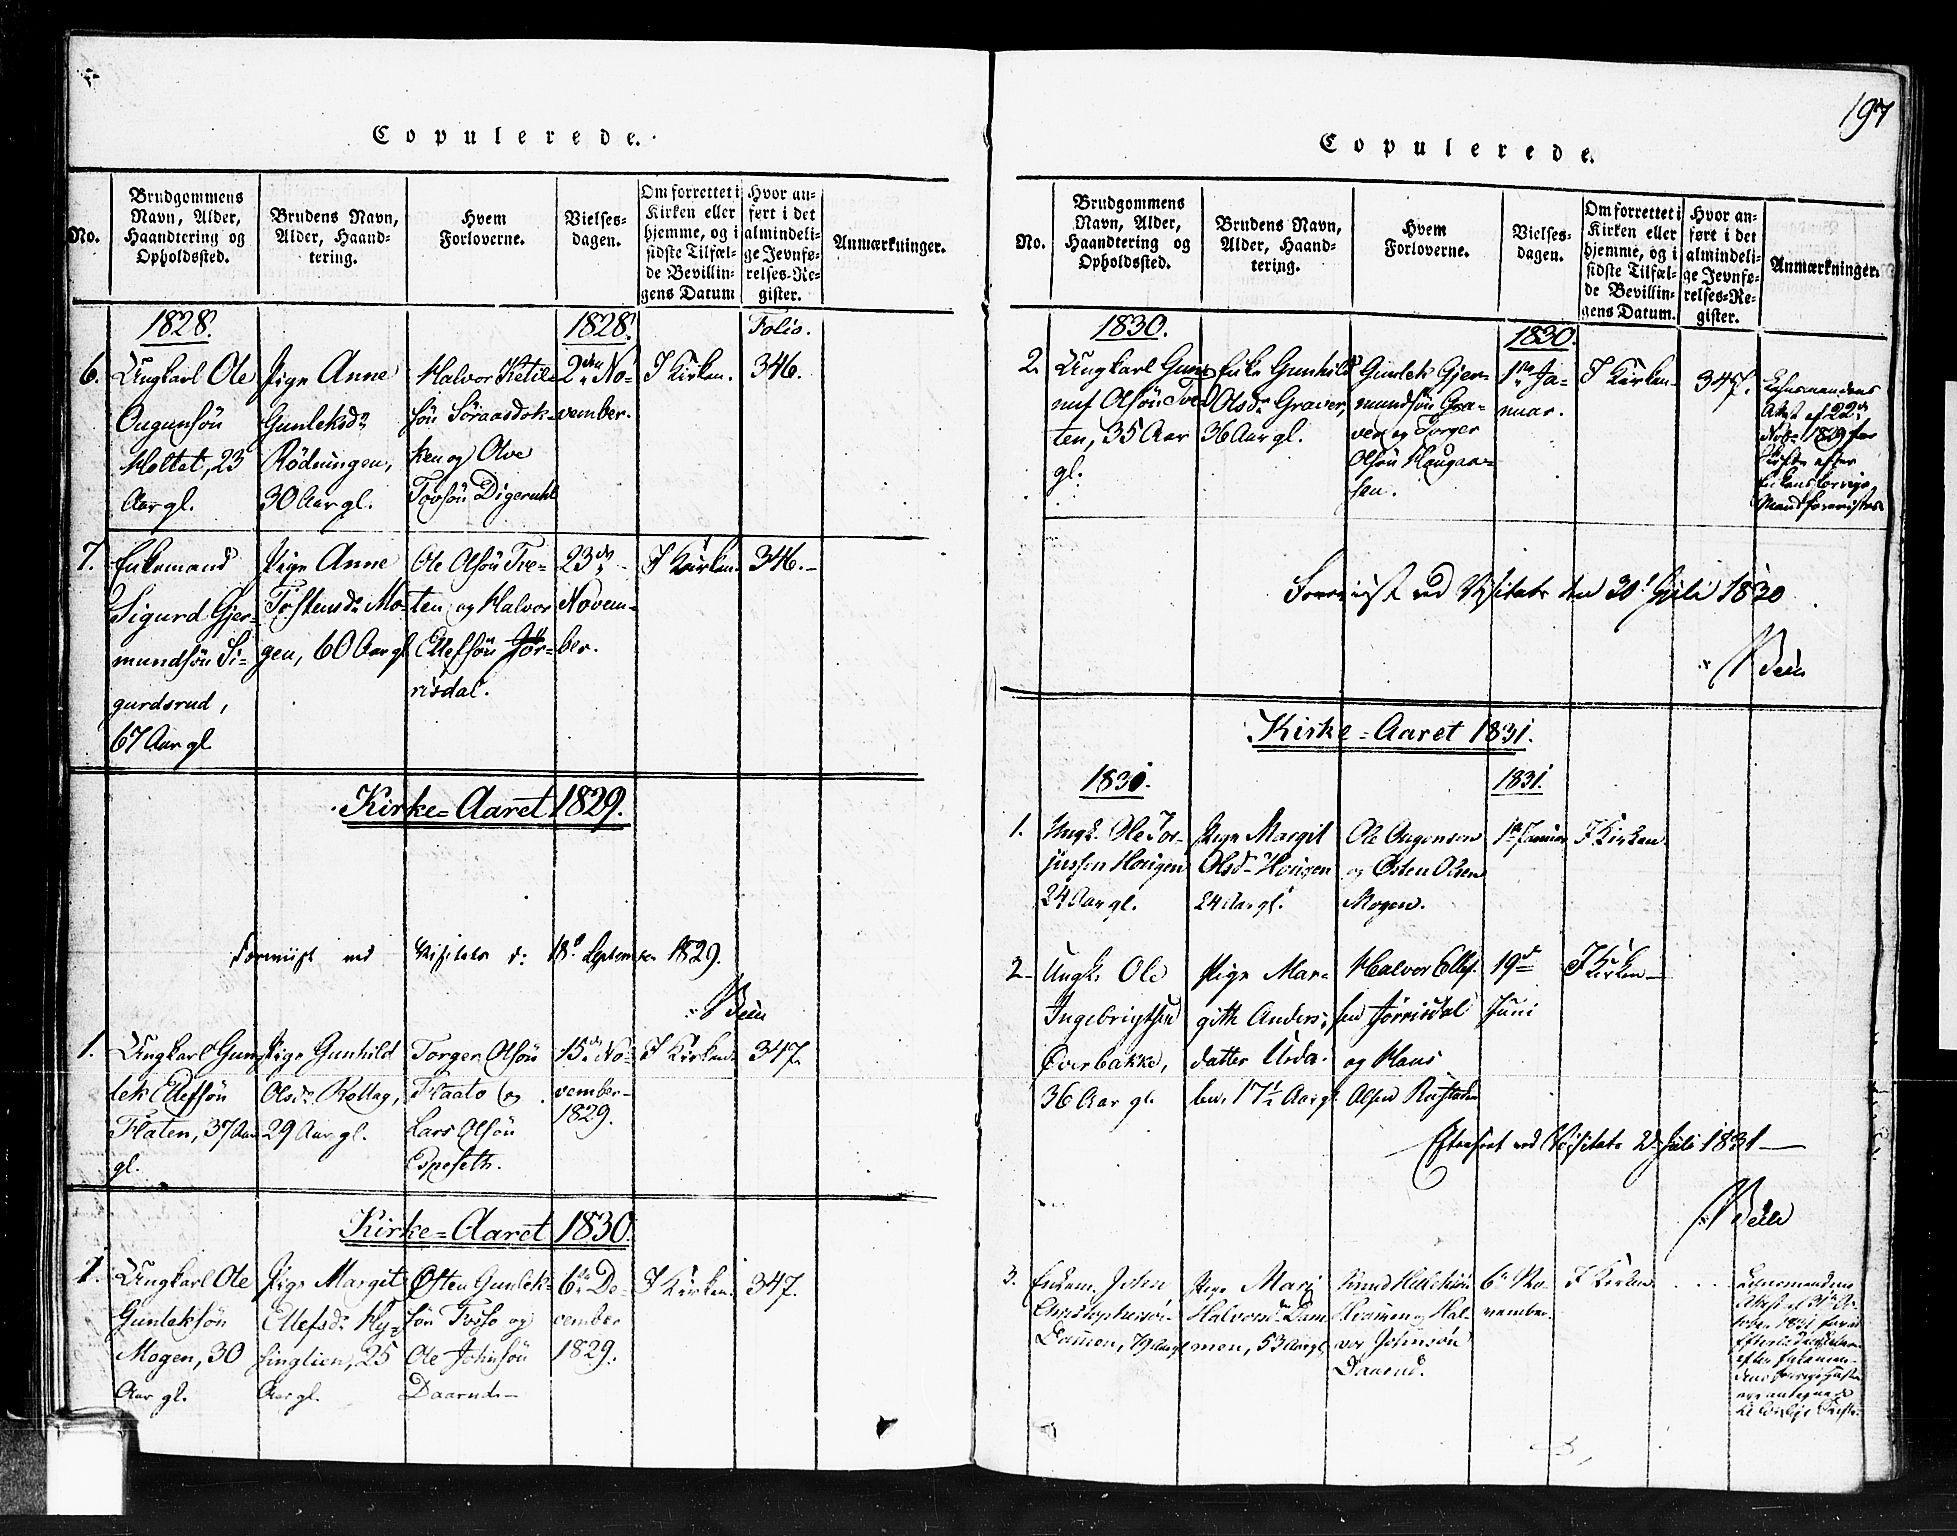 Copulerede.
No.
Brudgommens
Navn, Alder,
Haandtering og
Opholdssted.
Brudens Navn,
Alder, Haand-
tering.
Hvem
Forloverne.
Vielses-
dagen.
Om forrettet i
Kirken eller
hjemme, og i
sidste Tilfæl-
de Bevillin-
gens Datum
Hvor an-
ført i det
almindeli-
ge Jevnfø-
relses-Re-
gister.
Anmærkninger.
1828.
1828.
Folio.
6.
Ungkarl Ole
Ougunsøn
Holtet, 23
Aar gl.
Pige Anne
Gunleksdr
Rödningen,
30 Aar gl.
Halvor Ketil-
søn Söraasdok-
ken og Olve
Tovsøn Digeruhl
2den No-
vember.
I Kirken.
346.
7.
Enkemand
Sigurd Gjer-
mundsøn Si-
gurdsrud,
67 Aar gl
Pige Anne
Torstensdr Mo-
gen, 60 Aar gl
Ole Olsøn Tve-
ten og Halvor
Ellefsøn Jör-
risdal.
23de
Novem-
ber.
I Kirken.
346.
Kirke-Aaret 1829.
Foreviist ved Visitats d: 18de September 1829.
1.
Ungkarl Gun-
lek Ellefsøn
Flaten, 37 Aar
gl.
Pige Gunhild
Olsdr Rollag,
29 Aar gl.
Torger Olsøn
Flaato og
Lars Olsøn
Espeseth.
15de No-
vember
1829.
I Kirken.
347.
Kirke-Aaret 1830.
1.
Ungkarl Ole
Gunleksøn
Mogen, 30
Aar gl.
Pige Margit
Ellefsdr Hys-
singlien, 25
Aar gl.
Østen Gunlek-
søn Fosso og
Ole Johnsøn
Daarud.
6te De-
cember
1829.
I Kirken.
347.
197
Copulerede.
No.
Brudgommens
Navn, Alder,
Haandtering og
Opholdssted.
Brudens Navn,
Alder, Haand-
tering.
Hvem
Forloverne.
Vielses-
dagen.
Om forrettet i
Kirken eller
hjemme, og i
sidste Tilfæl-
de Bevillin-
gens Datum.
Hvor an-
ført i det
almindeli-
ge Jevnfø-
relses-Re-
gister.
Anmærkninger.
1830.
1830.
2.
Ungkarl Gun-
nuf Olsøn Tve-
ten, 35 Aar
gl.
Enke Gunhild
Olsdr Graver,
36 Aar gl.
Gunlek Gjer-
mundsøn Gra-
ver og Torger
Olsøn Haugaa-
sen.
1ste Ja-
nuar.
I Kirken
347.
Lehnsmandens
Attest af 22de
Nobr 1829 for
Skifte efter
Enkens forrige
Mand foreviist
Foreviist ved Visitats den 30t Juli 1830
Kirke-Aaret 1831.
1831.
1831.
1.
Ungk. Ole Tor-
jussen Hougen
24 Aar gl.
Pige Margit
Olsdr Hougen
24 Aar gl.
Ole Ougensen
og Østen Olsen
Mogen.
1ste Januar
I Kirken
2
Ungk. Ole
Ingebrigtsen
Øverbakke,
36 Aar gl.
Pige Mar-
gith Anders-
datter Urda-
len, 17½ Aar gl
Halvor Ellef-
sen Jørrisdal
og Hans
Olsen Rustad
19de
Juni
I Kirken
Efterseet ved Visitats 2 Juli 1831
3.
Enkem. John
Christophersøn
Daaen, 79 Aar gl
Pige Mari
Halvorsdr Dam
men, 53 Aar gl
Knud
og Hal-
vor Johnsøn
Daarud.
6te No-
vember.
I Kirken
Lensmandens
Attest af 31te Oc-
tober 1831